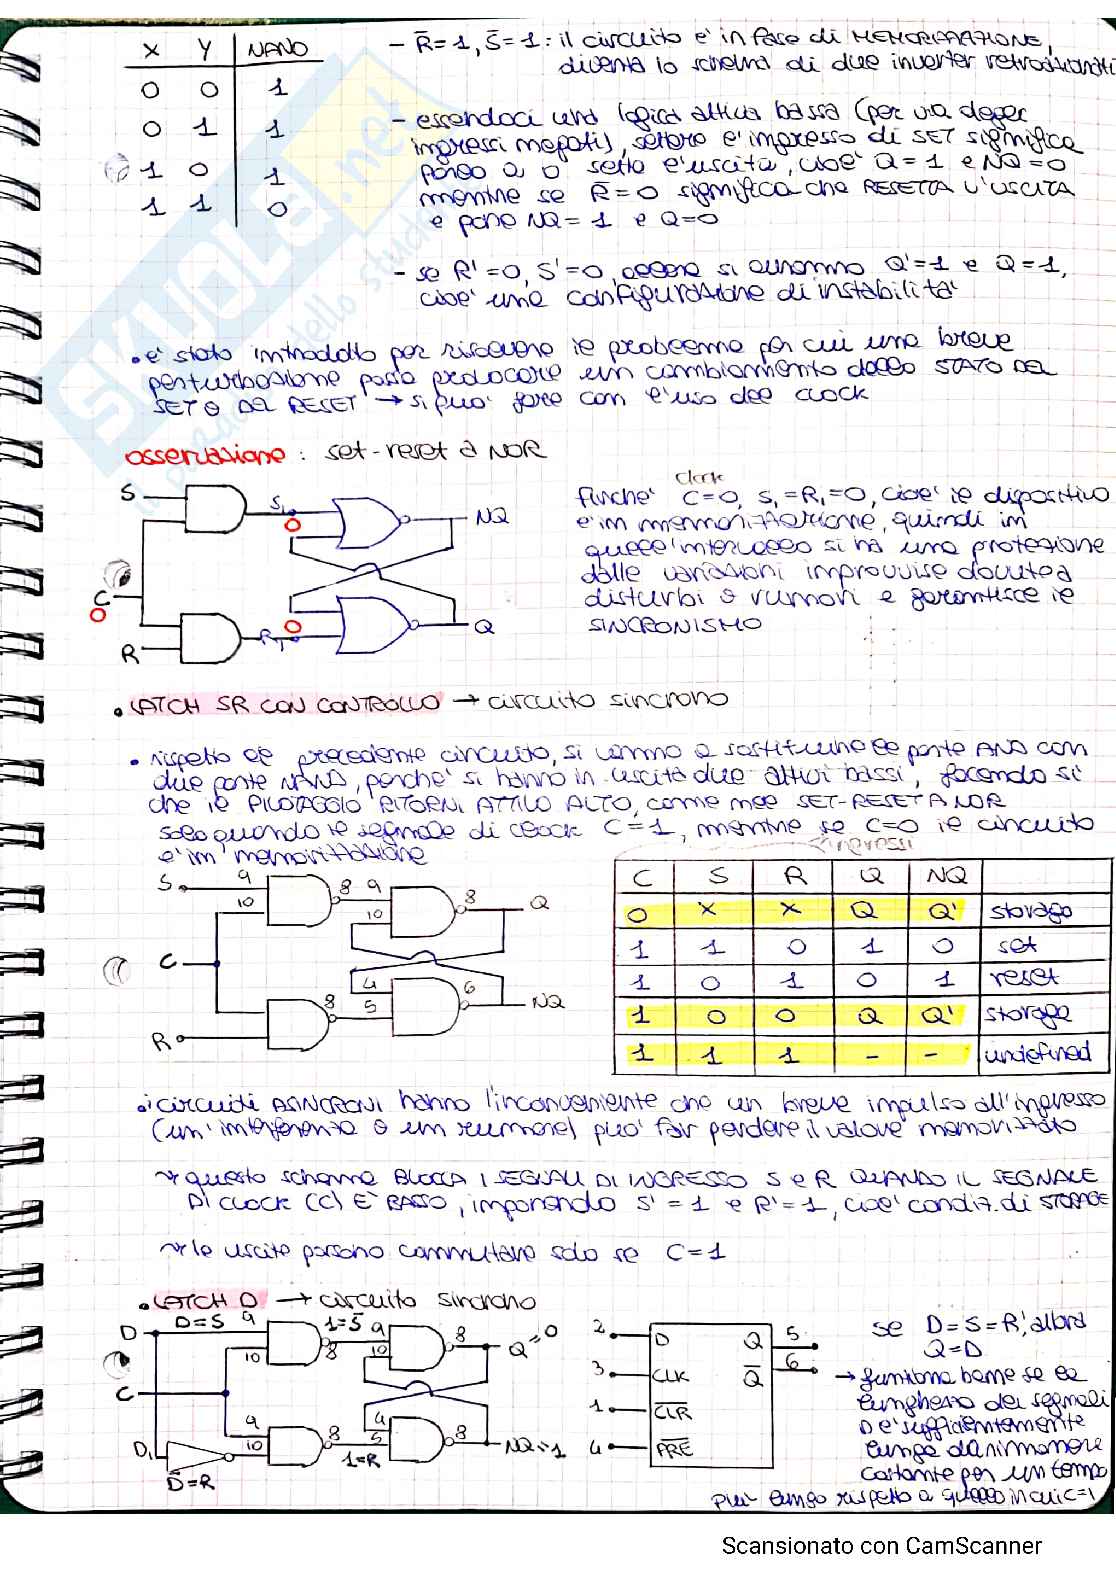 X Y NAND
0 0 1
0 1 1
1 0 1
1 1 0
- R̄=1, S̄=1: il circuito è in fase di MEMORIZZAZIONE,
diventa lo schema di due inverter retroazionati
- essendoci una logica attiva bassa (per via degli
ingressi negati), settare l'ingresso di SET significa
pongo a 0 setto l'uscita, cioè Q=1 e NQ=0
mentre se R̄=0 significa che RESETTA L'USCITA
e pone NQ=1 e Q=0
- se R'=0, S'=0, allora si avranno Q'=1 e Q=1,
cioè una configurazione di instabilità
• è stato introdotto per risolvere il problema per cui una breve
perturbazione possa provocare un cambiamento dello STATO DEL
SET O DEL RESET → si può fare con l'uso del CLOCK
osservazione: set-reset a NOR
S
S₁
0
NQ
C
0
R
R₁
0
Q
clock
finché C=0, S₁=R₁=0, cioè il dispositivo
è in memorizzazione, quindi in
quell'intervallo si ha una protezione
dalle variazioni improvvise dovute a
disturbi o rumori e garantisce il
SINCRONISMO
• LATCH SR CON CONTROLLO → circuito sincrono
• rispetto al precedente circuito, si vanno a sostituire le porte AND con
due porte NAND, perché si hanno in uscita due attivi bassi, facendo sì
che il PILOTAGGIO RITORNI ATTIVO ALTO, come nel SET-RESET A NOR
solo quando il segnale di clock C=1, mentre se C=0 il circuito
è in memorizzazione
ingressi
S 9 10 8 9 10 8 Q
C
R 8 4 5 6 NQ
C S R Q NQ
0 X X Q Q' storage
1 1 0 1 0 set
1 0 1 0 1 reset
1 0 0 Q Q' storage
1 1 1 - - undefined
• i circuiti ASINCRONI hanno l'inconveniente che un breve impulso all'ingresso
(un'interferenza o un rumore) può far perdere il valore memorizzato
↝ questo schema BLOCCA I SEGNALI DI INGRESSO S e R QUANDO IL SEGNALE
DI CLOCK (C) E' BASSO, imponendo S'=1 e R'=1, cioè condiz. di STORAGE
↝ le uscite possono commutare solo se C=1
• LATCH D → circuito sincrono
D D=S 9 10 8 1=S̄ 9 10 8 Q=0
C
D₁ D̄=R 9 10 8 1=R 4 5 8 NQ=1
2 D Q 5
3 CLK Q̄ 6
1 C̅L̅R̅
4 P̅R̅E̅
se D=S=R', allora
Q=D
→ funziona bene se la
lunghezza dei segnali
D è sufficientemente
lunga da rimanere
costante per un tempo
più lungo rispetto a quello in cui C=1
SKUOLA.net
Scansionato con CamScanner